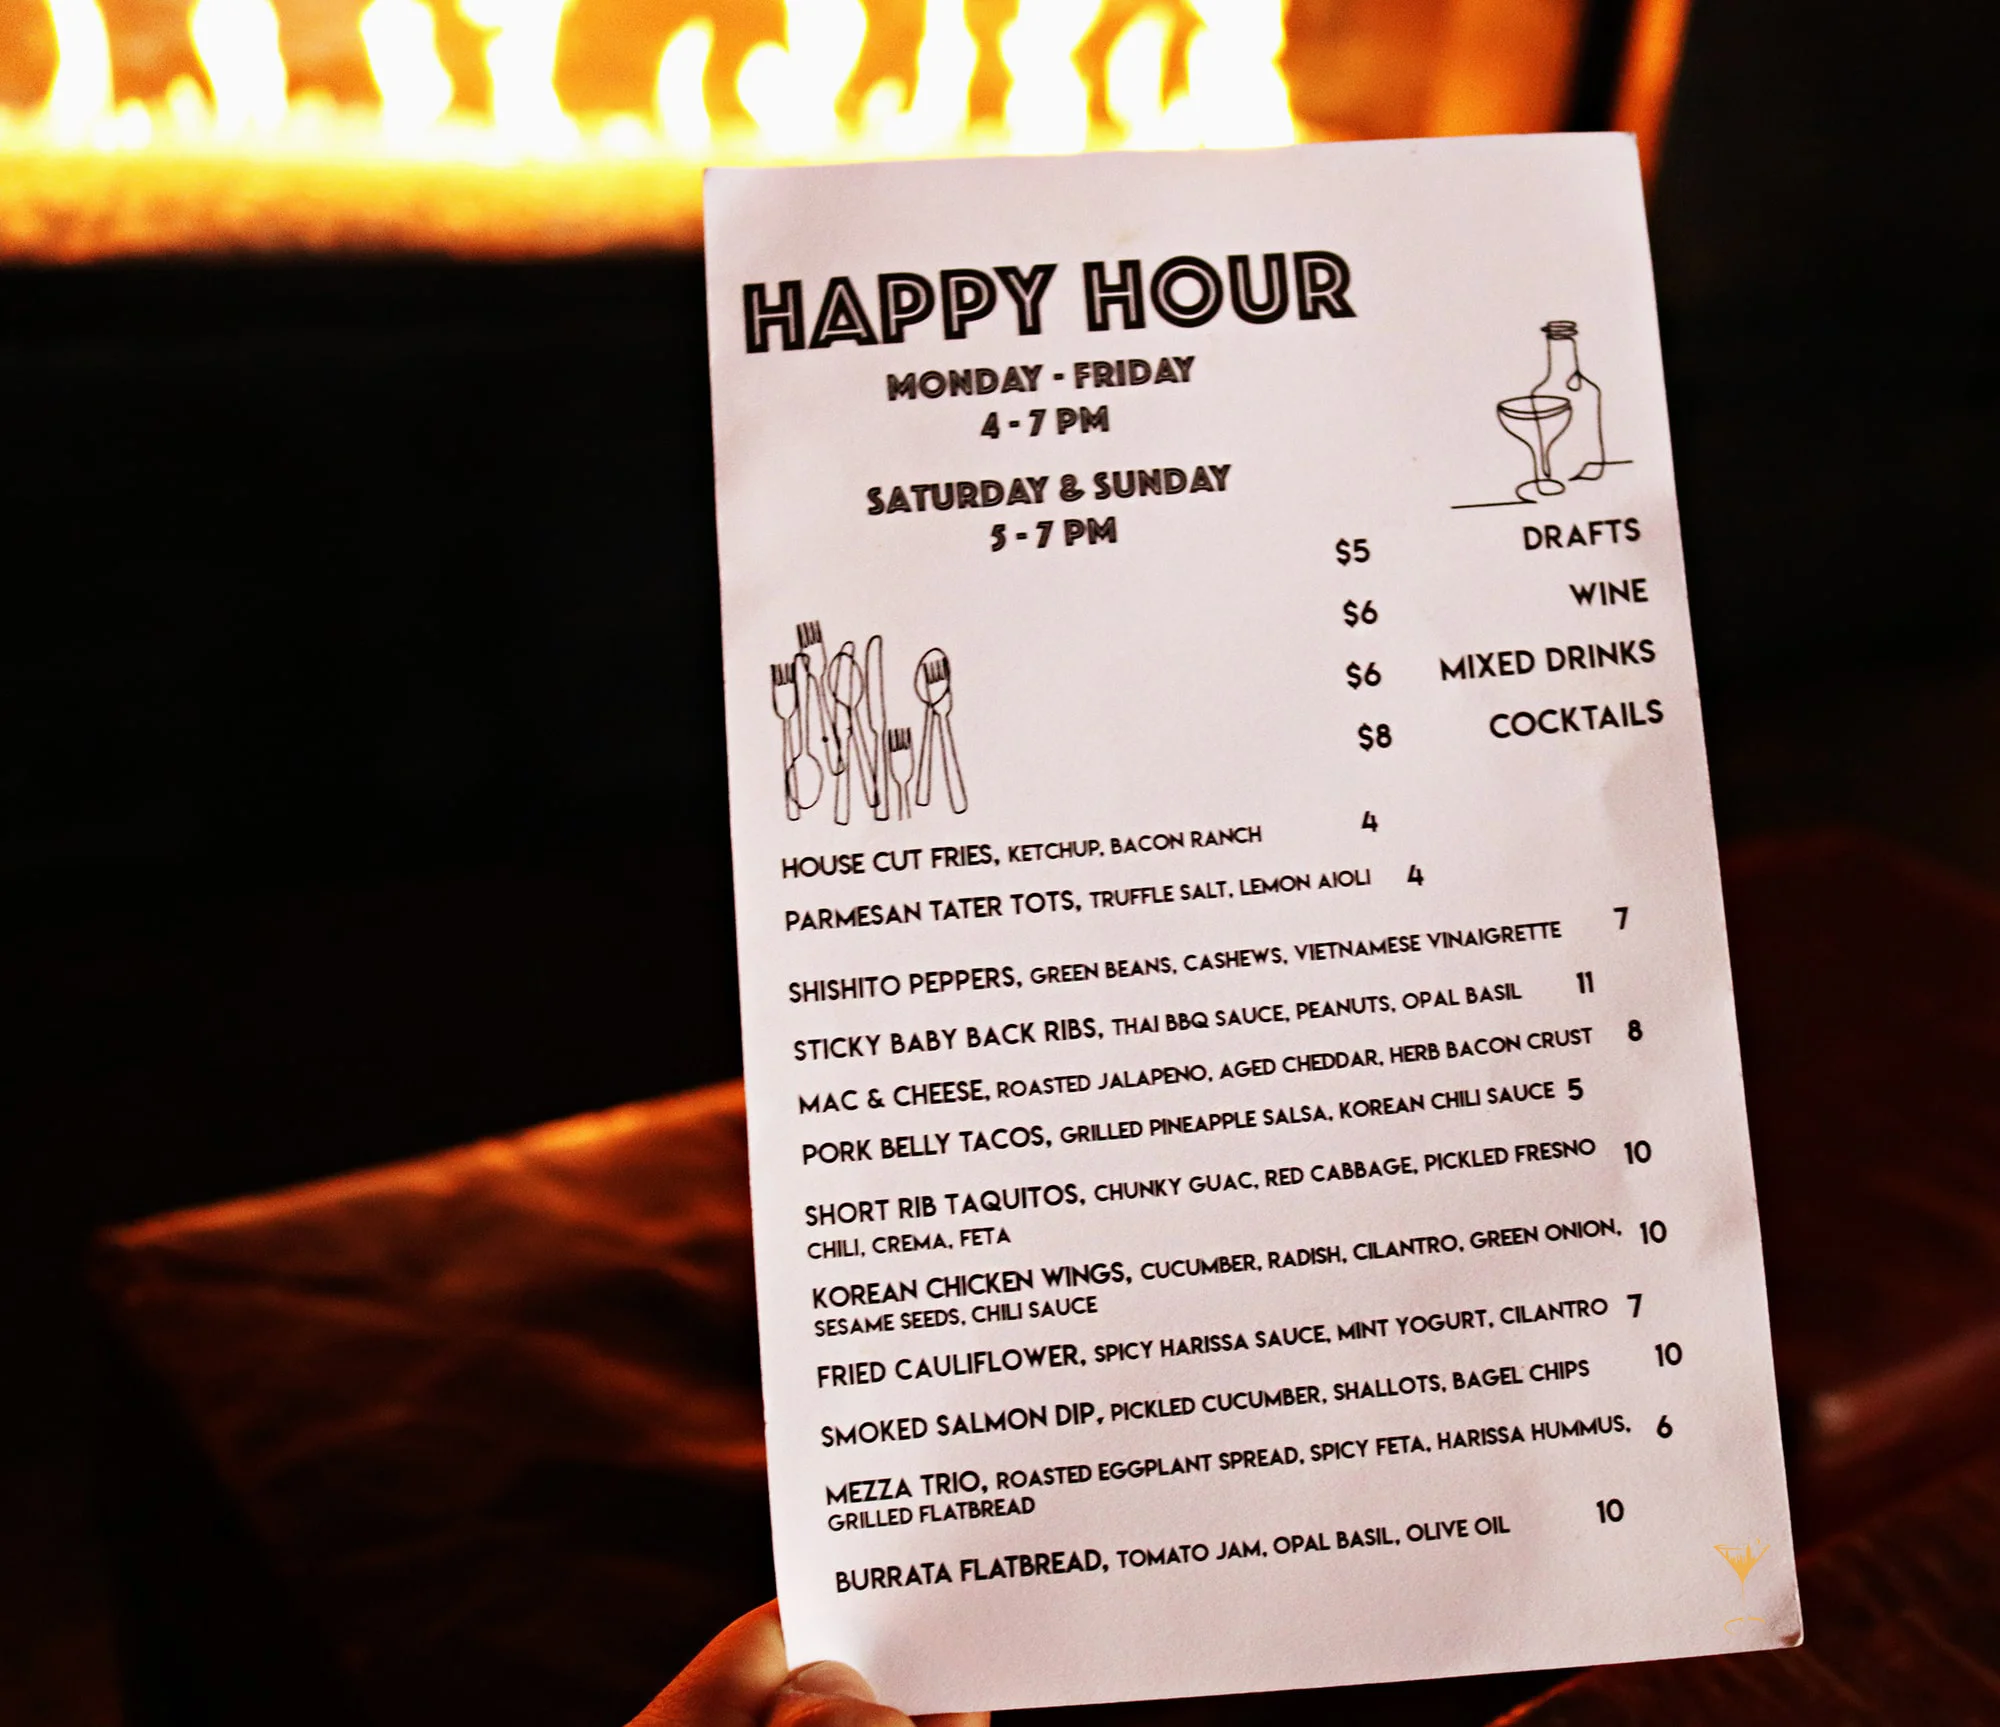 HAPPY HOUR
MONDAY - FRIDAY
4 - 7 PM
SATURDAY & SUNDAY
5 - 7 PM
$5 DRAFTS
$6 WINE
$6 MIXED DRINKS
$8 COCKTAILS
HOUSE CUT FRIES, KETCHUP, BACON RANCH 4
PARMESAN TATER TOTS, TRUFFLE SALT, LEMON AIOLI 4
SHISHITO PEPPERS, GREEN BEANS, CASHEWS, VIETNAMESE VINAIGRETTE 7
STICKY BABY BACK RIBS, THAI BBQ SAUCE, PEANUTS, OPAL BASIL 11
MAC & CHEESE, ROASTED JALAPENO, AGED CHEDDAR, HERB BACON CRUST 8
PORK BELLY TACOS, GRILLED PINEAPPLE SALSA, KOREAN CHILI SAUCE 5
SHORT RIB TAQUITOS, CHUNKY GUAC, RED CABBAGE, PICKLED FRESNO 10
CHILI, CREMA, FETA
KOREAN CHICKEN WINGS, CUCUMBER, RADISH, CILANTRO, GREEN ONION, 10
SESAME SEEDS, CHILI SAUCE
FRIED CAULIFLOWER, SPICY HARISSA SAUCE, MINT YOGURT, CILANTRO 7
SMOKED SALMON DIP, PICKLED CUCUMBER, SHALLOTS, BAGEL CHIPS 10
MEZZA TRIO, ROASTED EGGPLANT SPREAD, SPICY FETA, HARISSA HUMMUS, 6
GRILLED FLATBREAD
BURRATA FLATBREAD, TOMATO JAM, OPAL BASIL, OLIVE OIL 10